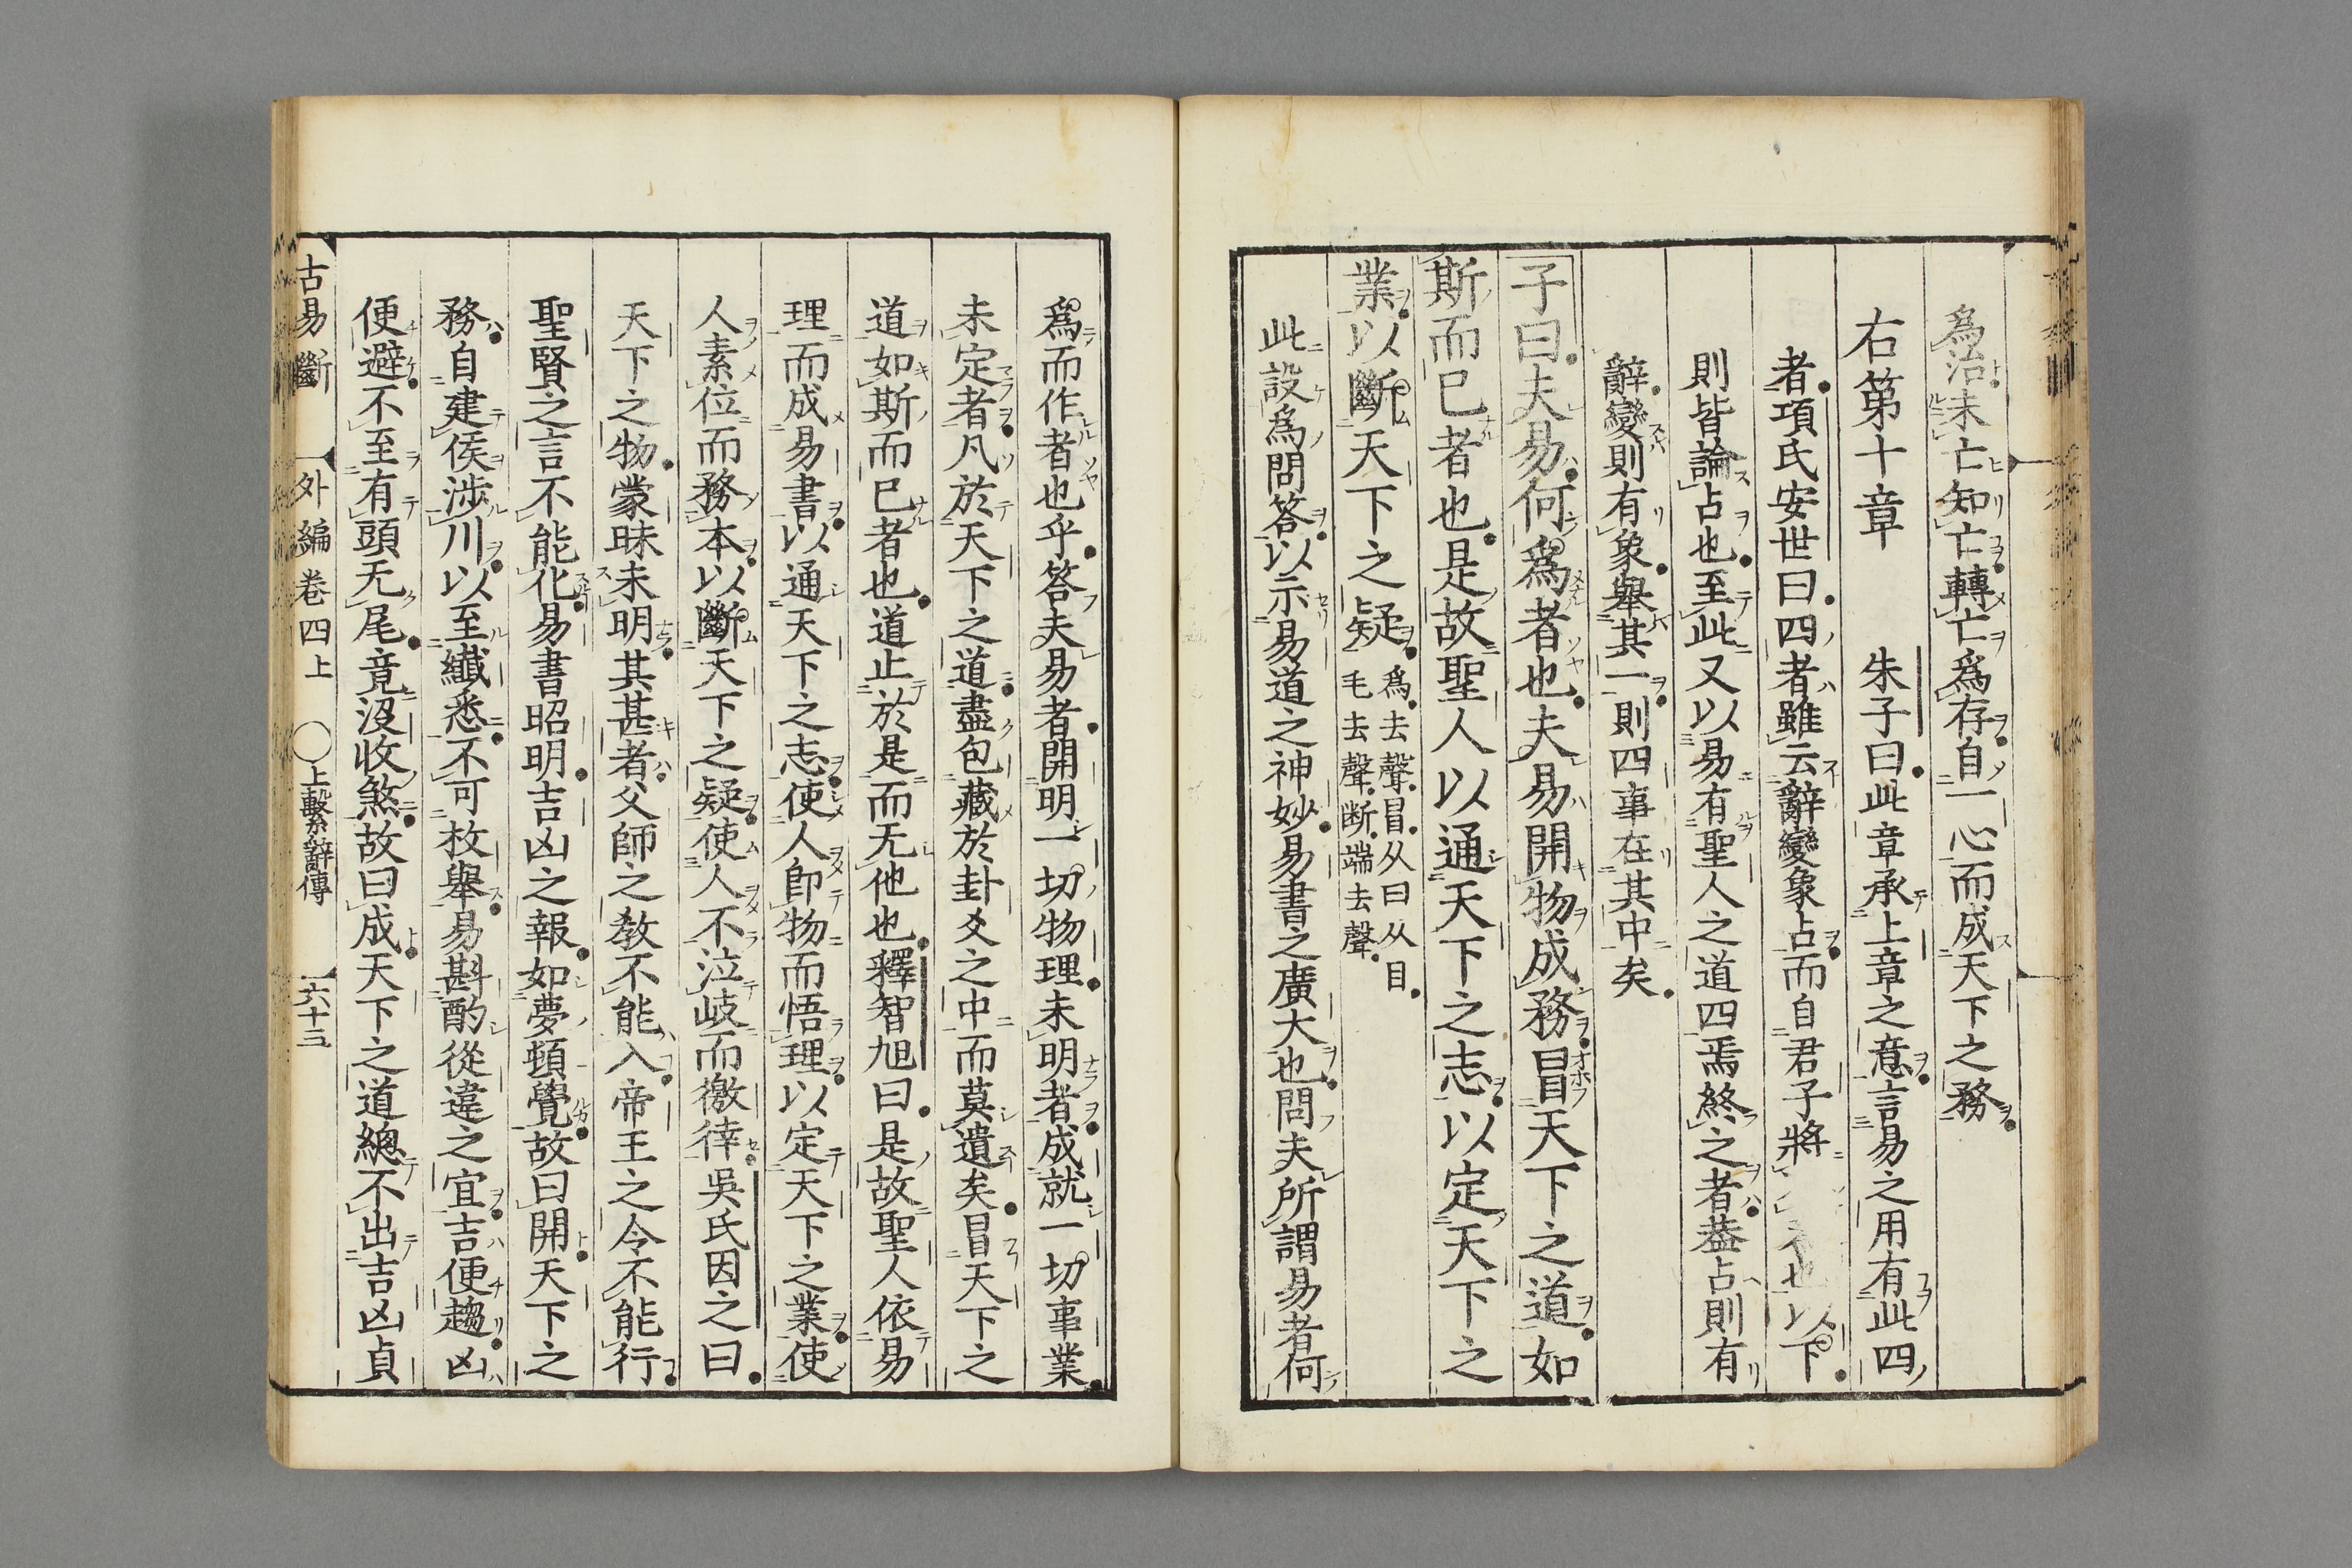 為治未亡知亡轉亡為存自一心而成天下之務
右第十章　朱子曰此章承上章之意言易之用有此四
者項氏安世曰四者雖云辭變象占而自君子將也以下
則皆論占也至此又以易有聖人之道四焉終之者葢占則有
辭變則有象舉其一則四事在其中矣
子曰夫易何為者也夫易開物成務冒天下之道如
斯而已者也是故聖人以通天下之志以定天下之
業以斷天下之疑
為去聲冒从曰从目
毛去聲断端去聲
此設為問答以示易道之神妙易書之廣大也問夫所謂易者何
為而作者也乎答夫易者開明一切物理未明者成就一切事業
未定者凡於天下之道盡包藏於卦爻之中而莫遺矣冒天下之
道如斯而已者也道止於是而无他也釋智旭曰是故聖人依易
理而成易書以通天下之志使人卽物而悟理以定天下之業使
人素位而務本以斷天下之疑使人不泣岐而徼倖吳氏因之曰
天下之物蒙昧未明其甚者父師之敎不能入帝王之令不能行
聖賢之言不能化易書昭明吉凶之報如夢頓覺故曰開天下之
務自建侯涉川以至纎悉不可枚舉易斟酌從違之宜吉便趨凶
便避不至有頭无尾竟沒收煞故曰成天下之道總不出吉凶貞
古易斷　外編卷四上　○上繫辭傳　六十三